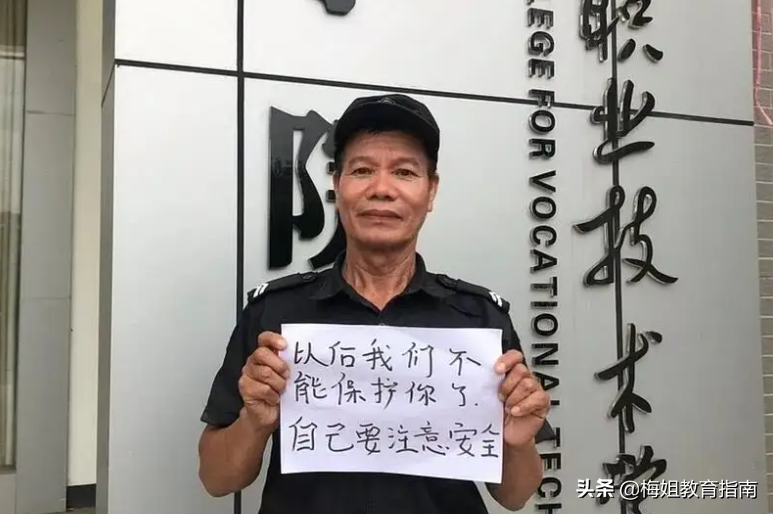 职业技术学
院
LEGE FOR VOCATIONAL TECH
以后我们不
能保护你了.
自己要注意安全
头条 @梅姐教育指南